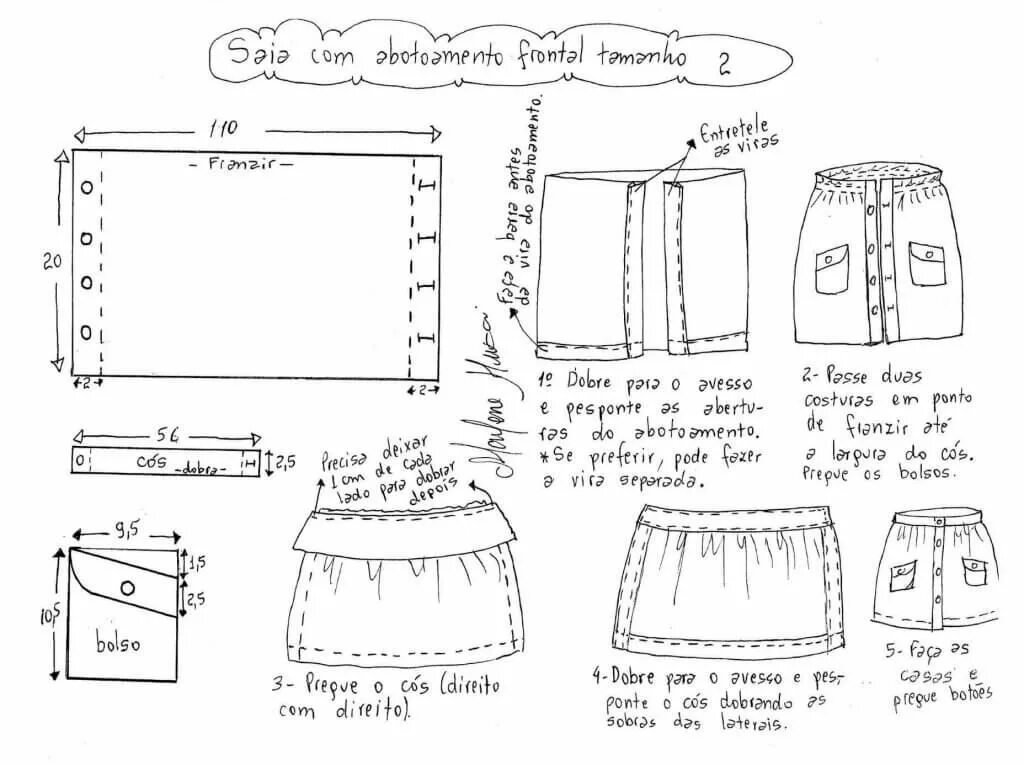 Saia com abotoamento frontal tamanho 2
110
- Franzir -
20
2
2
56
cós
- dobra -
2,5
9,5
1,5
2,5
10,5
bolso
Faça a barra antes
da vira do abotoamento.
Entretele
as viras
1º Dobre para o avesso
e pesponte as abertu-
ras do abotoamento.
*Se preferir, pode fazer
a vira separada.
2- Passe duas
costuras em ponto
de franzir até
a largura do cós.
Pregue os bolsos.
Precisa deixar
1 cm de cada
lado para dobrar
depois
3- Pregue o cós (direito
com direito).
4- Dobre para o avesso e pes-
ponte o cós dobrando as
sobras das laterais.
5- Faça as
casas e
pregue botões
Marlene